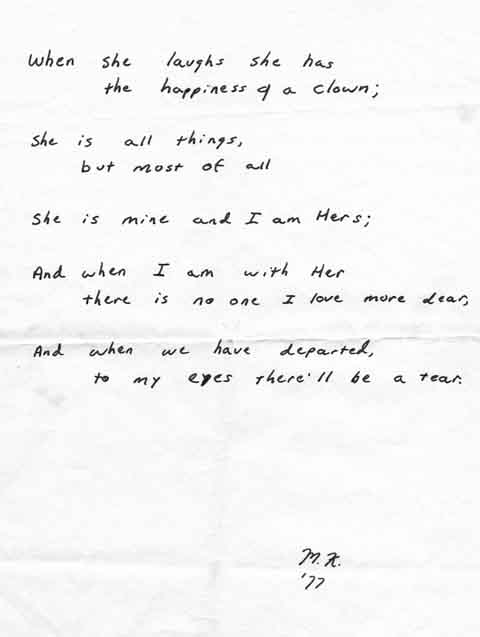 When she laughs she has
the happiness of a clown;
She is all things,
but most of all
She is mine and I am Hers;
And when I am with Her
there is no one I love more dear,
And when we have departed,
to my eyes there'll be a tear.
M.K.
'77